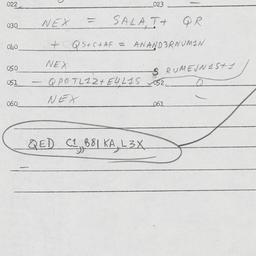 022 023
030 NEX = SALA,T+ QR
040 + QS+C+AF = ANAND3RNUM1N
050 NEX S RUMEJN1S+1
051 - QPOTL12+E4L1S 052 0
060 NEX 061 -
QED C1,881KA,L3X